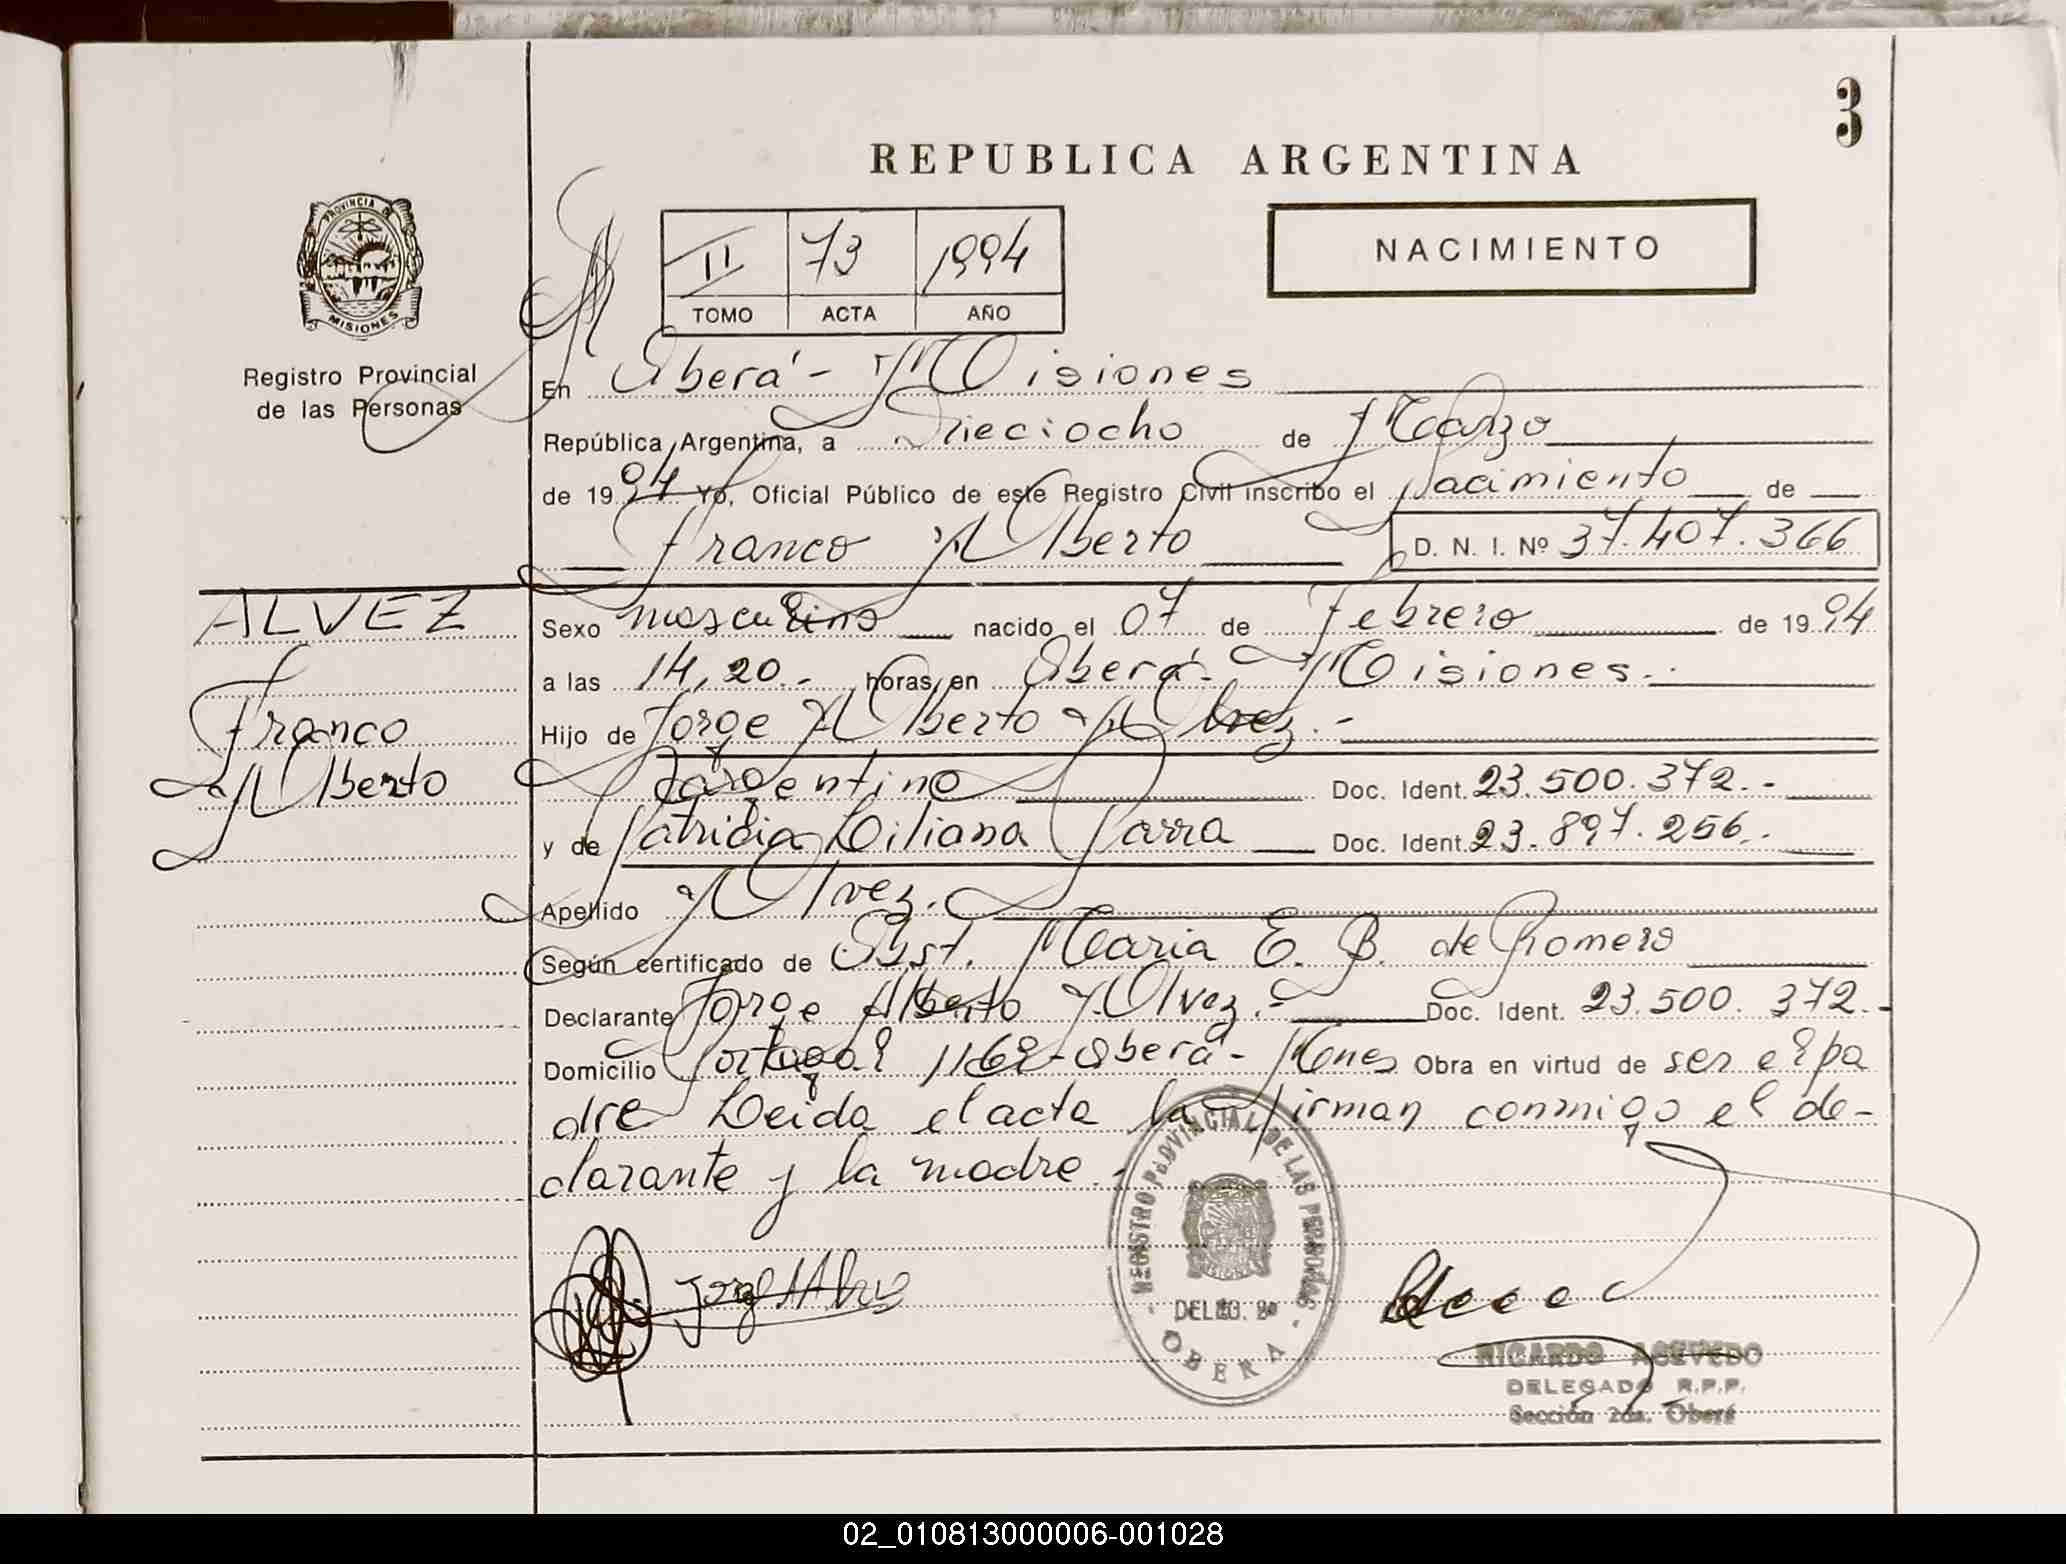 3
REPUBLICA ARGENTINA
PROVINCIA DE
MISIONES
Registro Provincial
de las Personas
II 73 1994
TOMO ACTA AÑO
NACIMIENTO
En Oberá - Misiones
República Argentina, a Dieciocho de Marzo
de 1994 Yo, Oficial Público de este Registro Civil inscribo el Nacimiento de
Franco Alberto D. N. I. Nº 37.407.366
ALVEZ
Franco
Alberto
Sexo masculino nacido el 07 de Febrero de 1994
a las 14,20.- horas, en Oberá - Misiones.-
Hijo de Jorge Alberto Alvez.-
Argentino Doc. Ident. 23.500.372.-
y de Patricia Liliana Parra Doc. Ident. 23.897.256.-
Apellido Alvez.
Según certificado de Obst. Maria E. B. de Romero
Declarante Jorge Alberto Alvez.- Doc. Ident. 23.500.372.-
Domicilio Portugal 1169 - Oberá - Mnes Obra en virtud de ser el pa
dre Leida el acta la firman conmigo el de-
clarante y la madre.-
Jorge A Alvez
REGISTRO PROVINCIAL DE LAS PERSONAS
MISIONES
OBERA
RICARDO ACEVEDO
DELEGADO R.P.P.
Sección 2da. Oberá
02_010813000006-001028